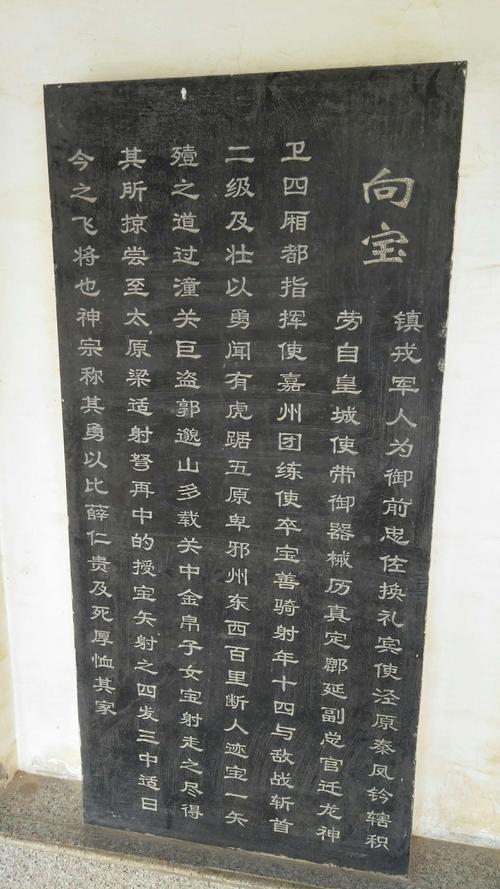 向宝
镇戎军人为御前忠佐换礼宾使泾原秦凤钤辖积
劳自皇城使带御器械历真定鄜延副总官迁龙神
卫四厢都指挥使嘉州团练使卒宝善骑射年十四与敌战斩首
二级及壮以勇闻有虎踞五原卑邪州东西百里断人迹宝一矢
殪之道过潼关巨盗郭邈山多载关中金帛子女宝射走之尽得
其所掠尝至太原梁适射弩再中的授宝矢射之四发三中适曰
今之飞将也神宗称其勇以比薛仁贵及死厚恤其家